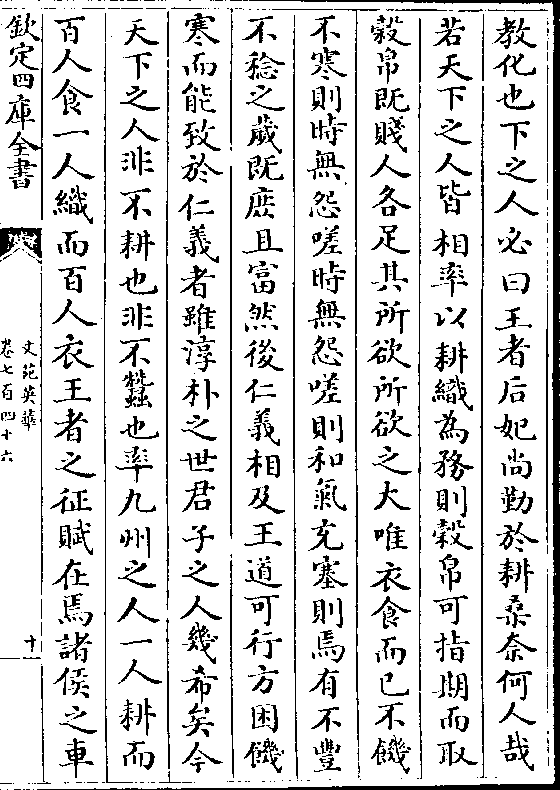 教化也下之人必曰王者后妃尚勤於耕桑奈何人哉
若天下之人皆相率以耕織為務則穀帛可指期而取
穀帛既賤人各足其所欲所欲之大唯衣食而已不饑
不寒則時無怨嗟時無怨嗟則和氣充塞則焉有不豐
不稔之歲既庶且富然後仁義相及王道可行方困饑
寒而能致於仁義者雖淳朴之世君子之人幾希矣今
天下之人非不耕也非不蠶也率九州之人一人耕而
百人食一人織而百人衣王者之征賦在焉諸侯之車
欽定四庫全書
文苑英華
卷七百四十六
十